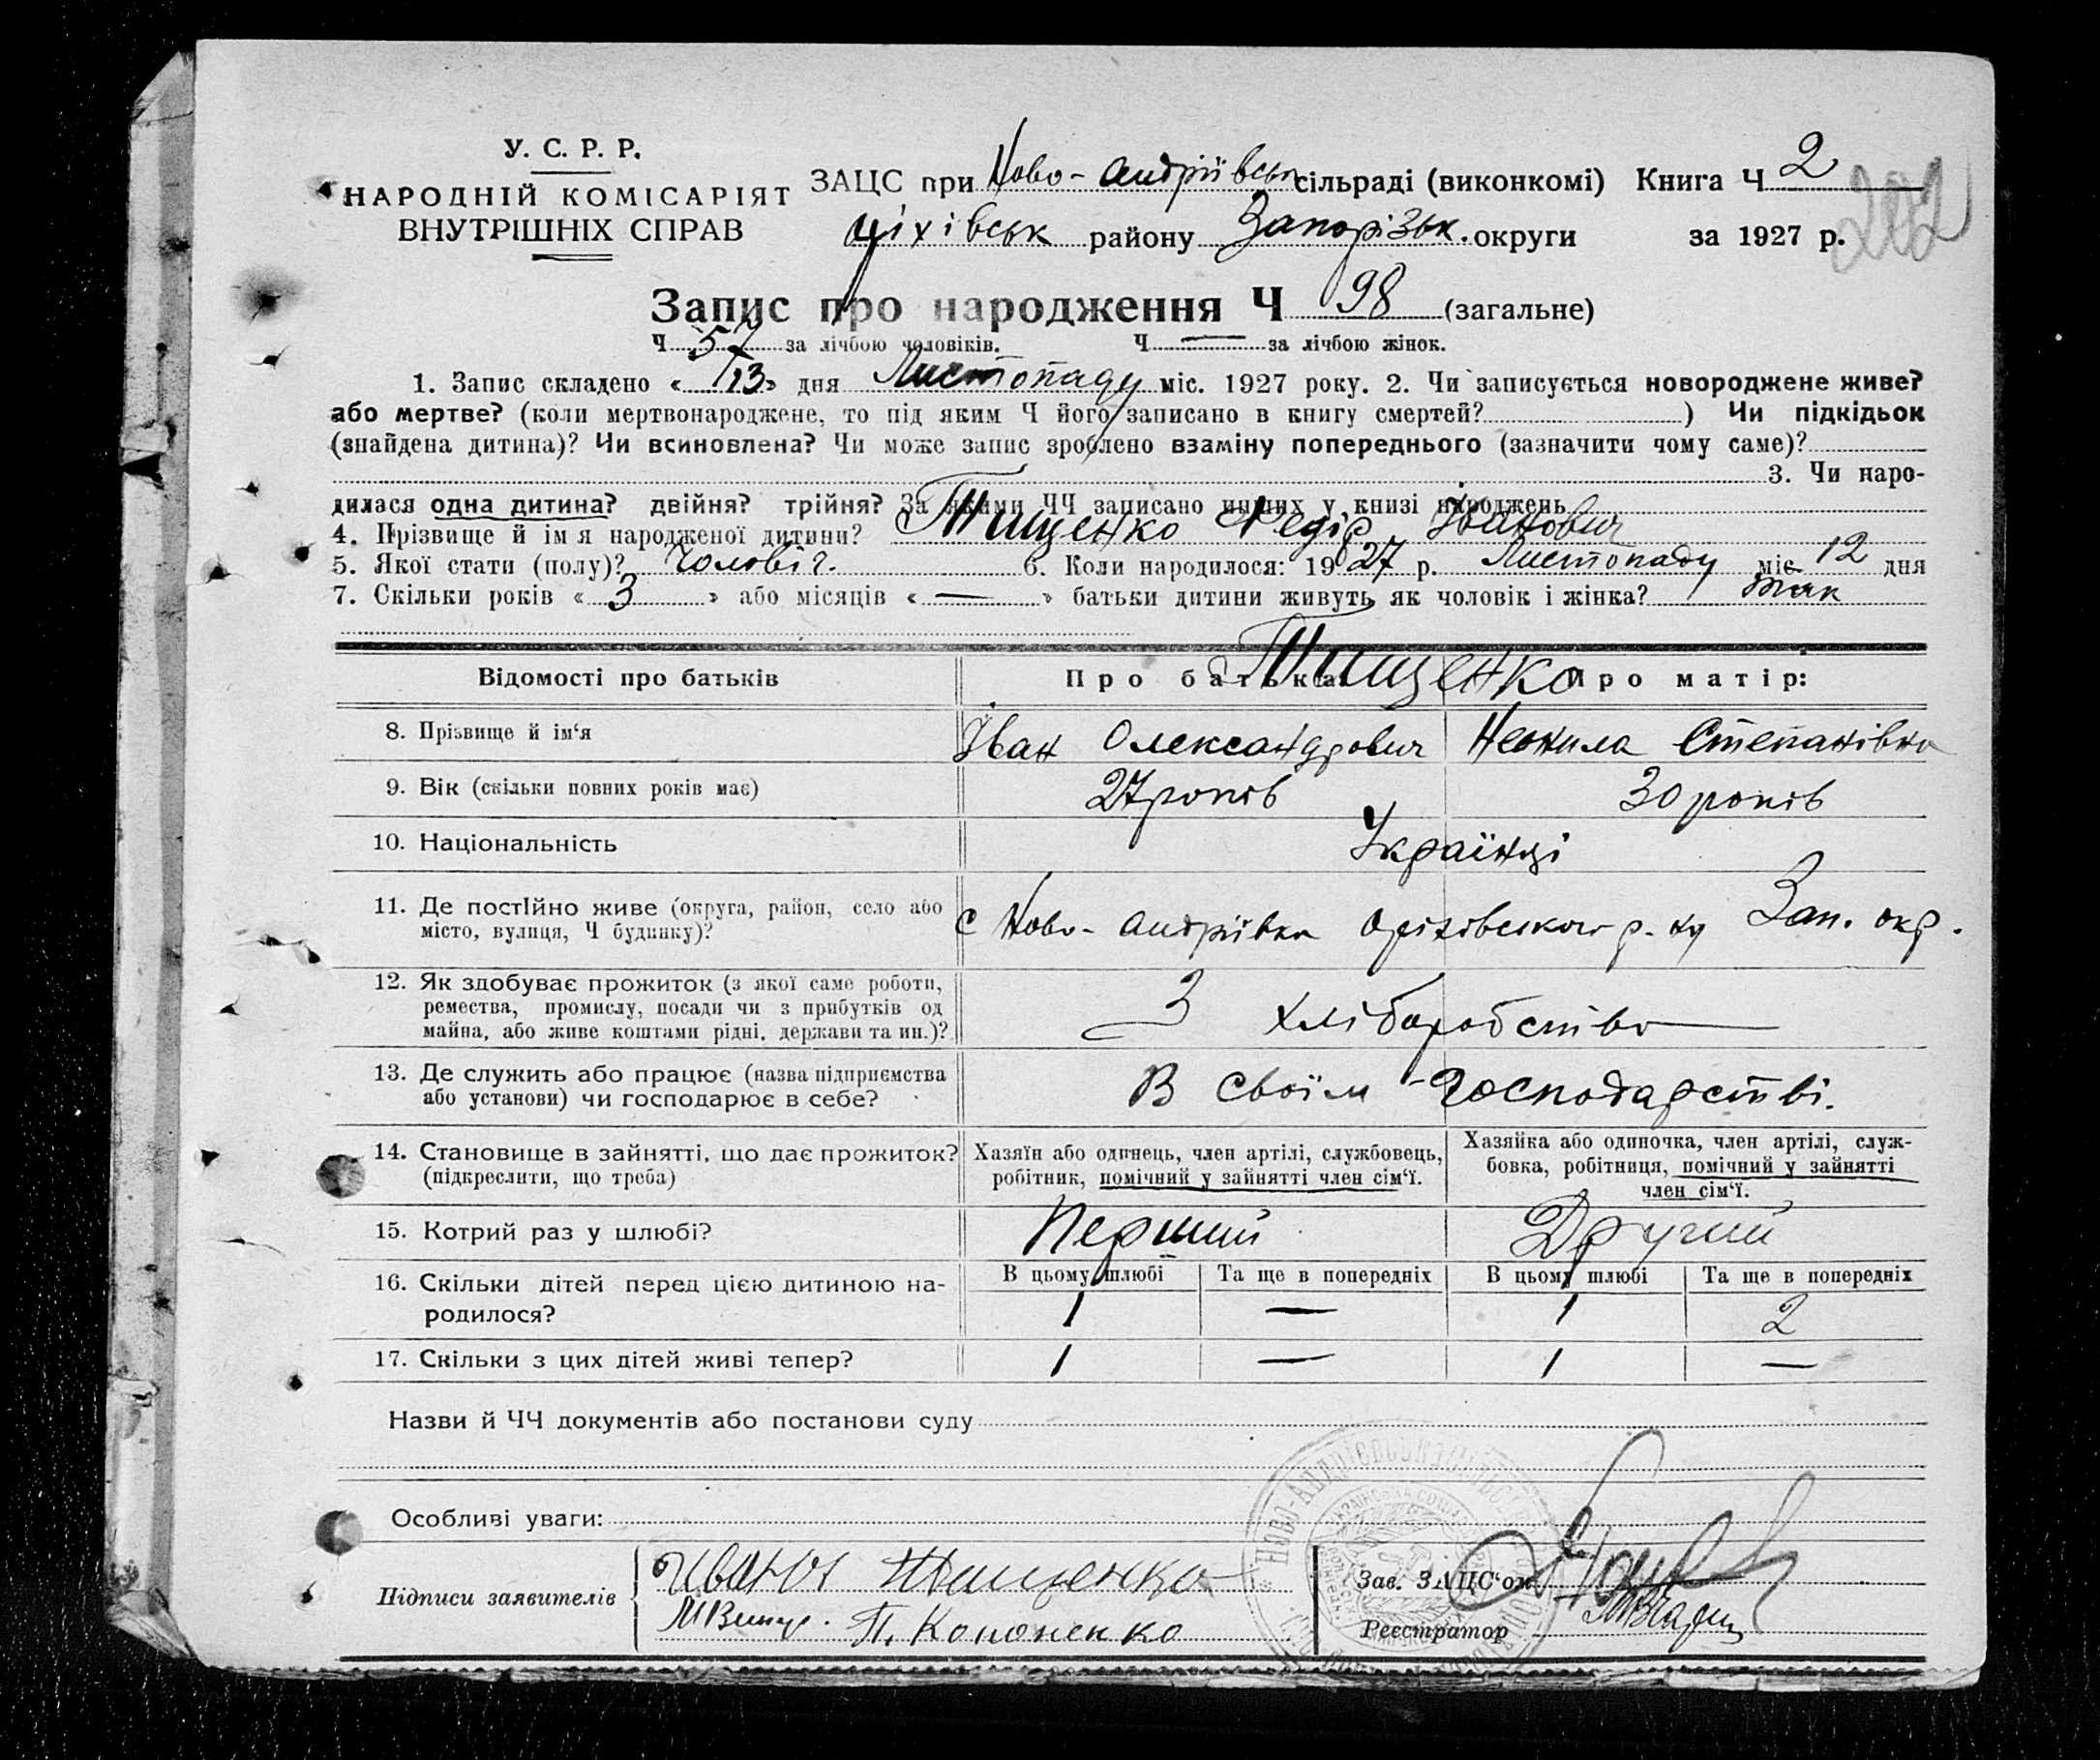 У. С. Р. Р.
НАРОДНІЙ КОМІСАРІЯТ
ВНУТРІШНІХ СПРАВ
ЗАЦС при Ново-Андріївськ сільраді (виконкомі) Книга Ч 2
202
Оріхівськ району Запорізьк. округи за 1927 р.
Запис про народження Ч 98 (загальне)
Ч 57 за лічбою чоловіків. Ч — за лічбою жінок.
1. Запис складено « 13 » дня Листопаду міс. 1927 року. 2. Чи записується новороджене живе?
або мертве? (коли мертвонароджене, то під яким Ч його записано в книгу смертей? ) Чи підкідьок
(знайдена дитина)? Чи всиновлена? Чи може запис зроблено взаміну попереднього (зазначити чому саме)?
3. Чи наро-
дилася одна дитина? двійня? трійня? За якими ЧЧ записано инших у книзі народжень
4. Прізвище й ім я народженої дитини? Тищенко Федір Іванович
5. Якої стати (полу)? Чоловіч. 6. Коли народилося: 1927 р. Листопаду міс 12 дня
7. Скільки років « 3 » або місяців « — » батьки дитини живуть як чоловік і жінка? так
Відомості про батьків Про батька: Про матір:
Тищенко
8. Прізвище й ім'я Іван Олександрович Неонила Степанівна
9. Вік (скільки повних років має) 27 років 30 років
10. Національність Українці
11. Де постійно живе (округа, район, село або
місто, вулиця, Ч будинку)?
с Ново-Андріївка Оріхівського р-ну Зап. окр.
12. Як здобуває прожиток (з якої саме роботи,
ремества, промислу, посади чи з прибутків од
майна, або живе коштами рідні, держави та ин.)?
З хліборобство
13. Де служить або працює (назва підприємства
або установи) чи господарює в себе?
В своїм господарстві.
14. Становище в зайнятті, що дає прожиток?
(підкреслити, що треба)
Хазяїн або одинець, член артілі, службовець,
робітник, помічний у зайнятті член сім'ї.
Хазяйка або одиночка, член артілі, служ-
бовка, робітниця, помічний у зайнятті
член сім'ї.
15. Котрий раз у шлюбі? Перший Другий
16. Скільки дітей перед цією дитиною на-
родилося?
В цьому шлюбі Та ще в попередніх В цьому шлюбі Та ще в попередніх
1 — 1 2
17. Скільки з цих дітей живі тепер? 1 — 1 —
Назви й ЧЧ документів або постанови суду
Особливі уваги:
Підписи заявителів
Тищенко
П. Кононенко
Зав. ЗАЦС'ом
Реєстратор